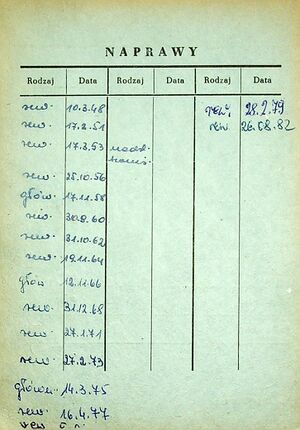 NAPRAWY
Rodzaj Data Rodzaj Data Rodzaj Data
rew. 10.3.48 rew. 28.2.79
rew. 17.2.51 rew 26.08.82
rew. 17.3.53
rew. 25.10.56
głów. 17.11.58
rew. 30.9.60
rew. 31.10.62
rew. 19.11.64
głów 12.11.66
rew. 31.12.68
rew. 27.1.71
rew. 27.2.73
główn. 14.3.75
rew. 16.4.77
rew